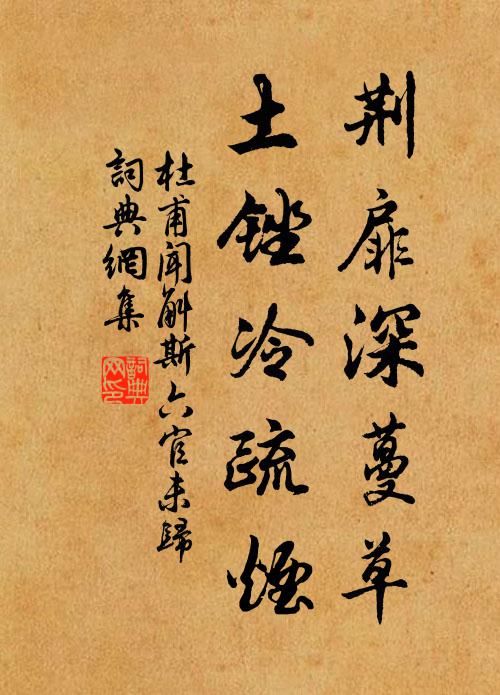 荆扉深蔓草
土锉冷疏煙
杜甫聞斛斯六官未歸
詞典網集
詞典网印